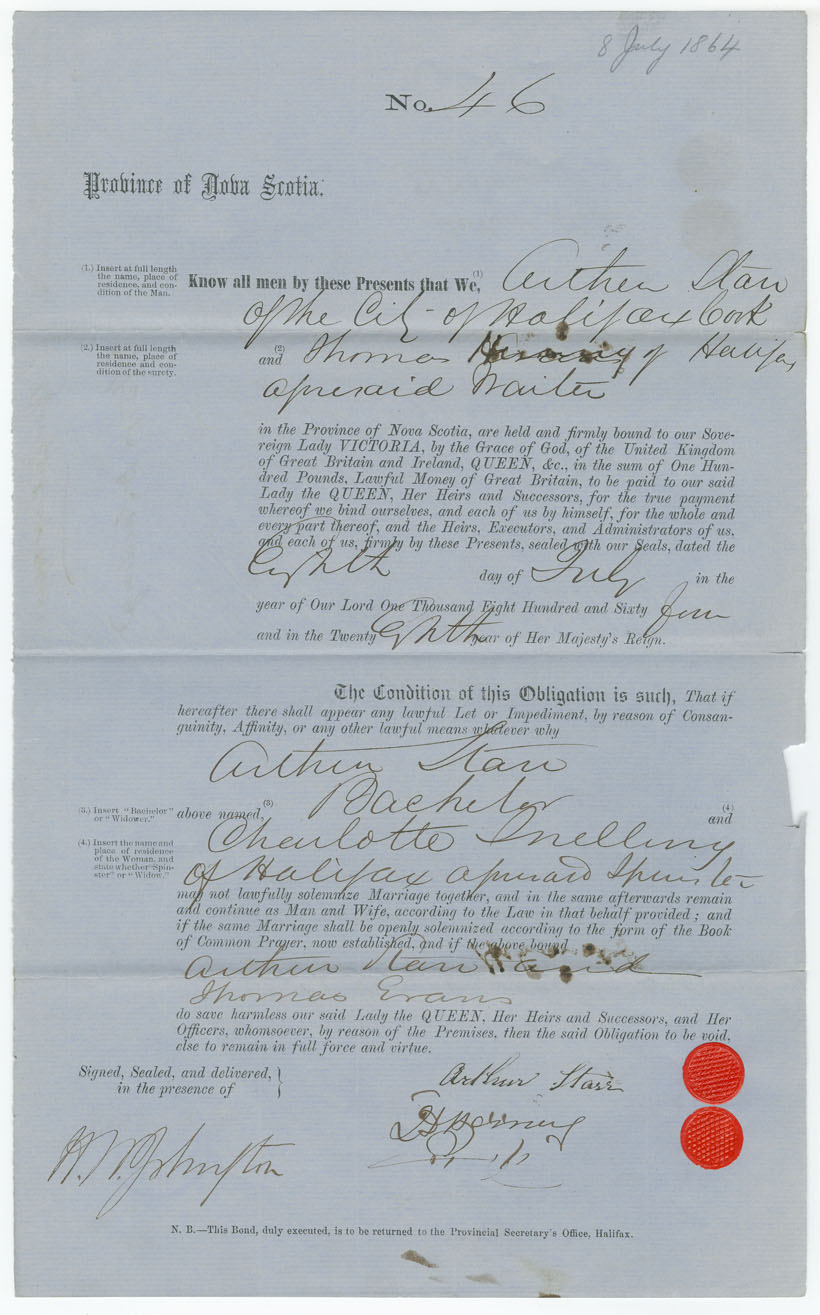 8 July 1864
No. 46
Province of Nova Scotia.
(1.) Insert at full length
the name, place of
residence, and con-
dition of the Man.
Know all men by these Presents that We, (1) Arthur Starr
of the City of Halifax Cook
(2.) Insert at full length
the name, place of
residence and con-
dition of the surety.
(2)
and Thomas of Halifax
aforesaid Waiter
in the Province of Nova Scotia, are held and firmly bound to our Sove-
reign Lady VICTORIA, by the Grace of God, of the United Kingdom
of Great Britain and Ireland, QUEEN, &c., in the sum of One Hun-
dred Pounds, Lawful Money of Great Britain, to be paid to our said
Lady the QUEEN, Her Heirs and Successors, for the true payment
whereof we bind ourselves, and each of us by himself, for the whole and
every part thereof, and the Heirs, Executors, and Administrators of us,
and each of us, firmly by these Presents, sealed with our Seals, dated the
Eighth day of July in the
year of Our Lord One Thousand Eight Hundred and Sixty four
and in the Twenty Eighth year of Her Majesty's Reign.
The Condition of this Obligation is such, That if
hereafter there shall appear any lawful Let or Impediment, by reason of Consan-
guinity, Affinity, or any other lawful means whatever why
Arthur Starr
(3.) Insert "Bachelor"
or "Widower."
above named, (3) Bachelor (4) and
(4.) Insert the name and
place of residence
of the Woman, and
state whether "Spin-
ster" or "Widow."
Charlotte Snelling
of Halifax aforesaid Spinster
may not lawfully solemnize Marriage together, and in the same afterwards remain
and continue as Man and Wife, according to the Law in that behalf provided; and
if the same Marriage shall be openly solemnized according to the form of the Book
of Common Prayer, now established, and if the above bound
Arthur Starr and
Thomas Evans
do save harmless our said Lady the QUEEN, Her Heirs and Successors, and Her
Officers, whomsoever, by reason of the Premises, then the said Obligation to be void,
else to remain in full force and virtue.
Signed, Sealed, and delivered,
in the presence of
Arthur Starr
H. W. Johnston
N. B.—This Bond, duly executed, is to be returned to the Provincial Secretary's Office, Halifax.